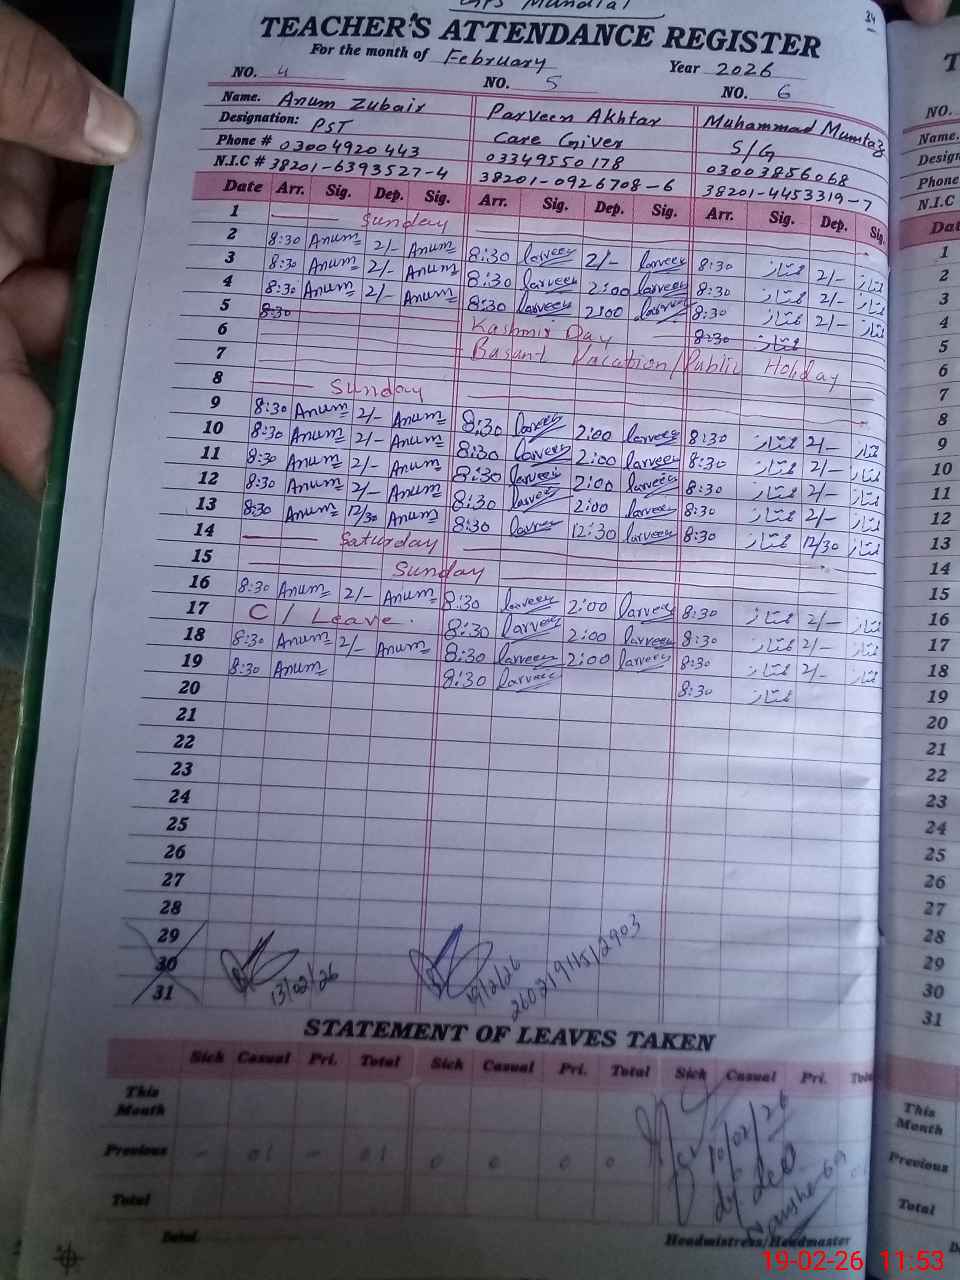 GPS Mundial
34
TEACHER'S ATTENDANCE REGISTER
For the month of February Year 2026
NO. 4 NO. 5 NO. 6
Name. Anum Zubair Parveen Akhtar Muhammad Mumtaz
Designation: PST Care Giver S/G
Phone # 03004920443 03349550178 03003856068
N.I.C # 38201-6393527-4 38201-0926708-6 38201-4453319-7
Date Arr. Sig. Dep. Sig. Arr. Sig. Dep. Sig. Arr. Sig. Dep. Sig.
1 Sunday
2 8:30 Anum 2/- Anum 8:30 Parveen 2/- Parveen 8:30 ممتاز 2/- ممتاز
3 8:30 Anum 2/- Anum 8:30 Parveen 2:00 Parveen 8:30 ممتاز 2/- ممتاز
4 8:30 Anum 2/- Anum 8:30 Parveen 2:00 Parveen 8:30 ممتاز 2/- ممتاز
5 8:30 Kashmir Day 8:30 ممتاز
6 Basant Vacation/Public Holiday
7
8 Sunday
9 8:30 Anum 2/- Anum 8:30 Parveen 2:00 Parveen 8:30 ممتاز 2/- ممتاز
10 8:30 Anum 2/- Anum 8:30 Parveen 2:00 Parveen 8:30 ممتاز 2/- ممتاز
11 8:30 Anum 2/- Anum 8:30 Parveen 2:00 Parveen 8:30 ممتاز 2/- ممتاز
12 8:30 Anum 2/- Anum 8:30 Parveen 2:00 Parveen 8:30 ممتاز 2/- ممتاز
13 8:30 Anum 12/30 Anum 8:30 Parveen 12:30 Parveen 8:30 ممتاز 12/30 ممتاز
14 Saturday
15 Sunday
16 8:30 Anum 2/- Anum 8:30 Parveen 2:00 Parveen 8:30 ممتاز 2/- ممتاز
17 C/Leave. 8:30 Parveen 2:00 Parveen 8:30 ممتاز 2/- ممتاز
18 8:30 Anum 2/- Anum 8:30 Parveen 2:00 Parveen 8:30 ممتاز 2/- ممتاز
19 8:30 Anum 8:30 Parveen 8:30 ممتاز
20
21
22
23
24
25
26
27
28
29
30
31
13/02/26 19/2/26 26021911512903
STATEMENT OF LEAVES TAKEN
Sick Casual Pri. Total Sick Casual Pri. Total Sick Casual Pri. Total
This Month
Previous - 01 - 01 0 0 0 0
Total
10/02/26
dy DEO
Headmistress/Headmaster
T
NO.
Name.
Design
Phone
N.I.C
Dat
1
2
3
4
5
6
7
8
9
10
11
12
13
14
15
16
17
18
19
20
21
22
23
24
25
26
27
28
29
30
31
This Month
Previous
Total
19-02-26 11:53